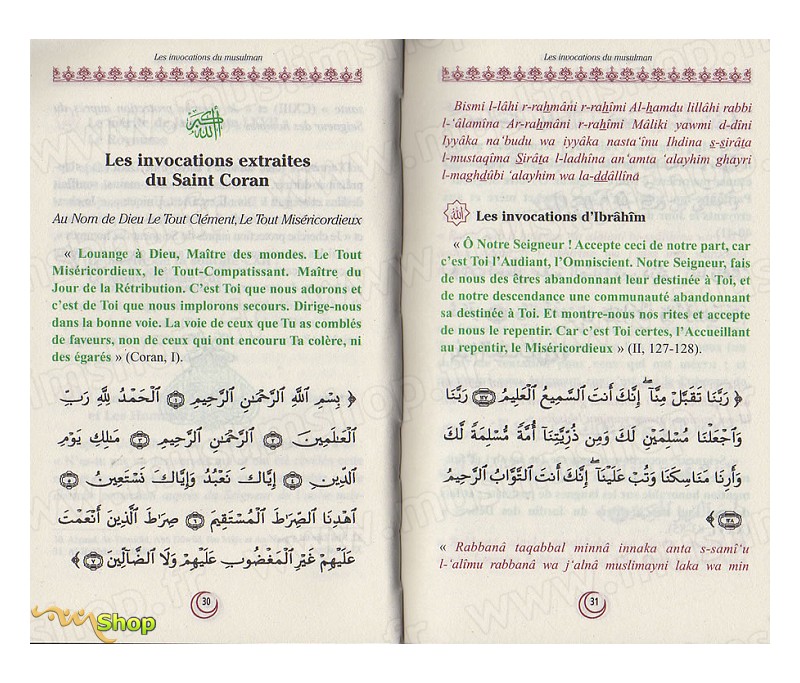 Les invocations du musulman
Les invocations extraites
du Saint Coran
Au Nom de Dieu Le Tout Clément, Le Tout Miséricordieux
« Louange à Dieu, Maître des mondes. Le Tout
Miséricordieux, le Tout-Compatissant. Maître du
Jour de la Rétribution. C'est Toi que nous adorons et
c'est de Toi que nous implorons secours. Dirige-nous
dans la bonne voie. La voie de ceux que Tu as comblés
de faveurs, non de ceux qui ont encouru Ta colère, ni
des égarés » (Coran, I).
﴿ بِسْمِ ٱللَّهِ ٱلرَّحْمَٰنِ ٱلرَّحِيمِ ١ ٱلْحَمْدُ لِلَّهِ رَبِّ
ٱلْعَٰلَمِينَ ٢ ٱلرَّحْمَٰنِ ٱلرَّحِيمِ ٣ مَٰلِكِ يَوْمِ
ٱلدِّينِ ٤ إِيَّاكَ نَعْبُدُ وَإِيَّاكَ نَسْتَعِينُ ٥
ٱهْدِنَا ٱلصِّرَٰطَ ٱلْمُسْتَقِيمَ ٦ صِرَٰطَ ٱلَّذِينَ أَنْعَمْتَ
عَلَيْهِمْ غَيْرِ ٱلْمَغْضُوبِ عَلَيْهِمْ وَلَا ٱلضَّآلِّينَ ٧ ﴾
30
Shop
Les invocations du musulman
Bismi l-lâhi r-rahmâni r-rahîmi Al-hamdu lillâhi rabbi
l-'âlamîna Ar-rahmâni r-rahîmi Mâliki yawmi d-dîni
Iyyâka na'budu wa iyyâka nasta'înu Ihdina s-sirâta
l-mustaqîma Sirâta l-ladhîna an'amta 'alayhim ghayri
l-maghdûbi 'alayhim wa la-ddâllînâ
الله
Les invocations d'Ibrâhîm
« Ô Notre Seigneur ! Accepte ceci de notre part, car
c'est Toi l'Audiant, l'Omniscient. Notre Seigneur, fais
de nous des êtres abandonnant leur destinée à Toi, et
de notre descendance une communauté abandonnant
sa destinée à Toi. Et montre-nous nos rites et accepte
de nous le repentir. Car c'est Toi certes, l'Accueillant
au repentir, le Miséricordieux » (II, 127-128).
﴿ رَبَّنَا تَقَبَّلْ مِنَّآ ۖ إِنَّكَ أَنتَ ٱلسَّمِيعُ ٱلْعَلِيمُ ١٢٧ رَبَّنَا
وَٱجْعَلْنَا مُسْلِمَيْنِ لَكَ وَمِن ذُرِّيَّتِنَآ أُمَّةً مُّسْلِمَةً لَّكَ
وَأَرِنَا مَنَاسِكَنَا وَتُبْ عَلَيْنَآ ۖ إِنَّكَ أَنتَ ٱلتَّوَّابُ ٱلرَّحِيمُ
١٢٨ ﴾
« Rabbanâ taqabbal minnâ innaka anta s-samî'u
l-'alîmu rabbanâ wa j'alnâ muslimayni laka wa min
31